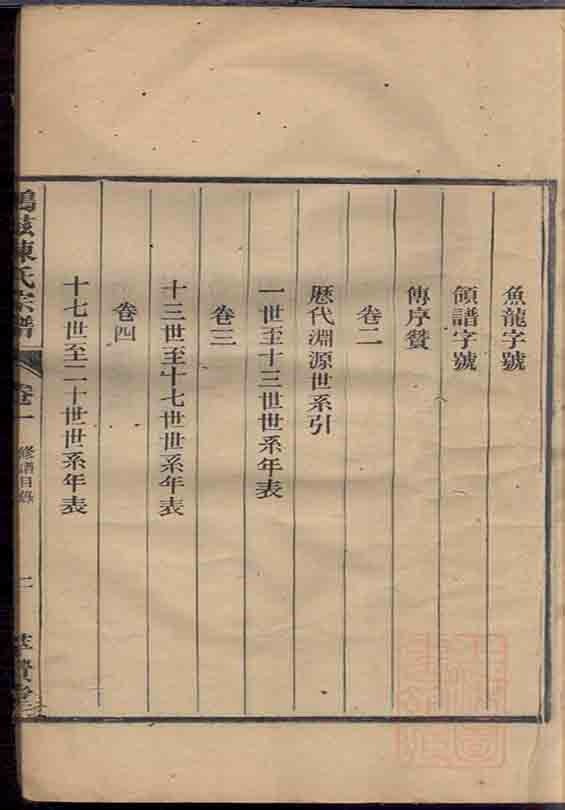 魚龍字號
領譜字號
傳序贊
卷二
歷代淵源世系引
一世至十三世世系年表
卷三
十三世至十七世世系年表
卷四
十七世至二十世世系年表
陳氏宗譜
卷一
修譜目錄
二